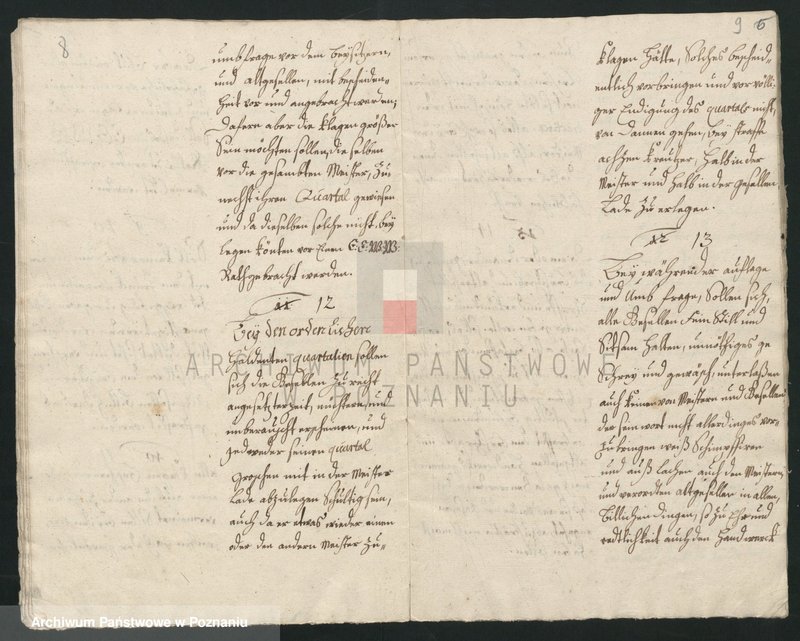 8
umbfrage vor dem beysitzern,
und altgesellen, mit bescheiden-
heit vor und angebracht werden,
Dafern aber die klagen größer
Sein möchten sollen, die selben
vor die gesambten Meister, zu
nechst ihren Quartal gewiesen
und da dieselben solche nicht, bey
legen könten vor Einen E. E.
Rath gebracht werden.
12
Bey den ordentlichen
haldenten quartalien sollen
sich die Gesellen zu recht
angesetzter Zeit, nüchtern, und
unberauscht erscheinen, und
Jedweder seinen quartal
groschen mit in der Meister
Lade abzulegen Schultig sein,
auch da er etwas wieder einen
oder den andern Meister zu-
9
klagen hätte, Solches bescheid-
entlich vorbringen und vor völli-
ger Endigung des quartals nicht,
von dannen gehen, bey straffe
achzen Kreutzer, halb in der
Meister und halb in der gesellen
Lade zu erlegen.
13
Bey währender auflage
und Umb frage, Sollen sich,
alle Gesellen fein Still und
Sitsam halten, unnöthiges ge
Schrey und gewäsch, unterlaßen
auch keinen von Meistern und Gesellen
der sein wort nicht allerdinges vor-
zubringen weiß Schimpffiren
und auß lachen auch den Meistern,
und verorden altgesellen in allen,
billichen dingen, so zu Ehr und
redtlichkeit auch den Handwerck
ARCHIWUM PAŃSTWOWE
W POZNANIU
Archiwum Państwowe w Poznaniu